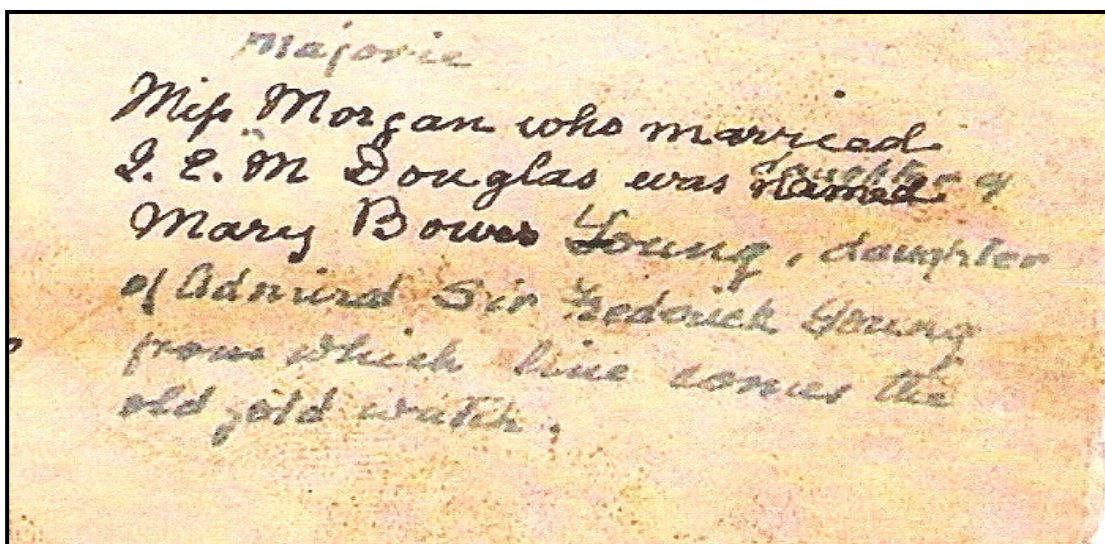 Majorie
Miss Morgan who married
I. E. M Douglas was named daughter of
Mary Bower Young, daughter
of Admiral Sir Frederick Young
from which line comes the
old gold watch.